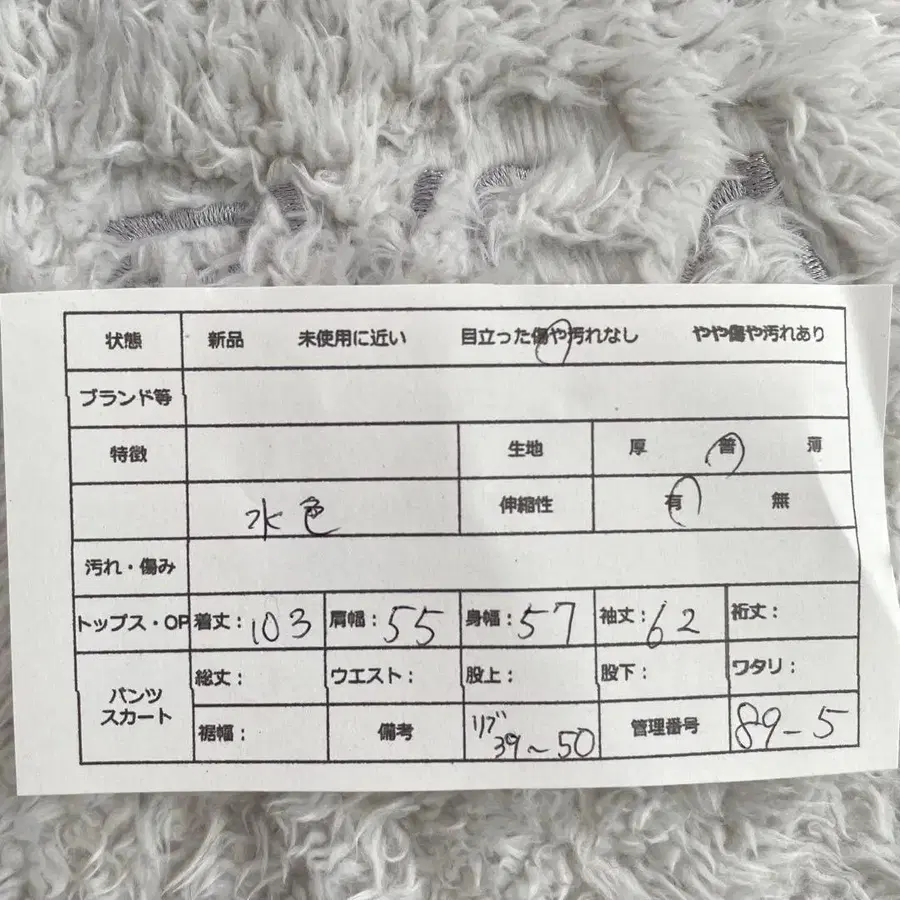 状態 新品 未使用に近い 目立った傷や汚れなし やや傷や汚れあり
ブランド等
特徴 生地 厚 普 薄
水色 伸縮性 有 無
汚れ・傷み
トップス・OP 着丈:103 肩幅:55 身幅:57 袖丈:62 裄丈:
パンツ スカート 総丈: ウエスト: 股上: 股下: ワタリ:
裾幅: 備考 リブ 39～50 管理番号 89-5